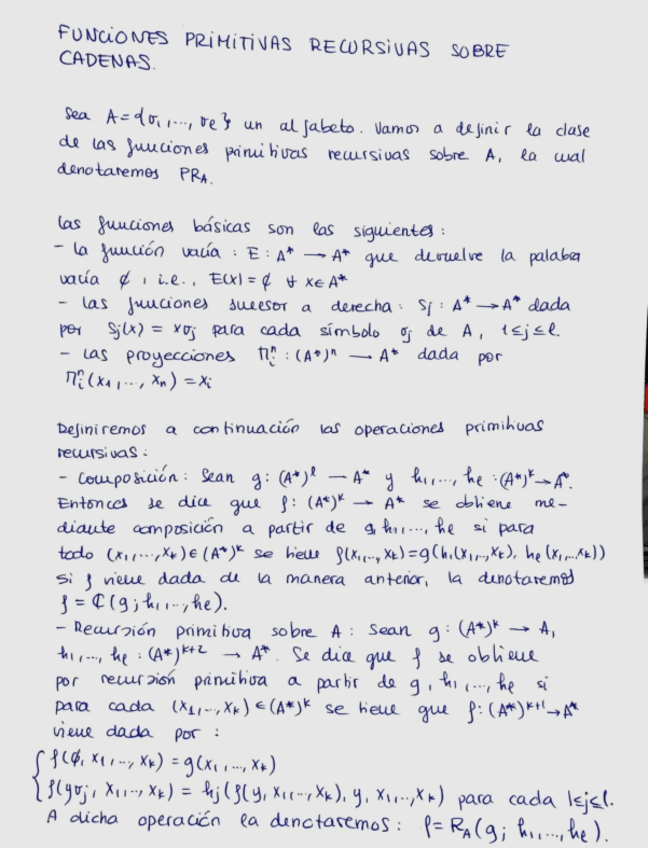 FUNCIONES PRIMITIVAS RECURSIVAS SOBRE
CADENAS.
Sea A={σ₁,..., σℓ} un alfabeto. Vamos a definir la clase
de las funciones primitivas recursivas sobre A, la cual
denotaremos PR_A.
Las funciones básicas son las siguientes:
- La función vacía: E: A* → A* que devuelve la palabra
vacía ∅, i.e., E(x) = ∅ ∀ x∈A*
- Las funciones sucesor a derecha: Sj: A* → A* dada
por Sj(x) = xσj para cada símbolo σj de A, 1≤j≤ℓ.
- Las proyecciones Πᵢⁿ: (A*)ⁿ → A* dada por
Πᵢⁿ(x₁,..., xₙ) = xᵢ
Definiremos a continuación las operaciones primitivas
recursivas:
- Composición: Sean g: (A*)^ℓ → A* y h₁,..., hℓ: (A*)^k → A*.
Entonces se dice que f: (A*)^k → A* se obtiene me-
diante composición a partir de g, h₁,..., hℓ si para
todo (x₁,..., x_k) ∈ (A*)^k se tiene f(x₁,..., x_k) = g(h₁(x₁,..., x_k), hℓ(x₁,...x_k))
Si f viene dada de la manera anterior, la denotaremos
f = ℂ(g; h₁,..., hℓ).
- Recursión primitiva sobre A: Sean g: (A*)^k → A,
h₁,..., hℓ: (A*)^{k+2} → A*. Se dice que f se obtiene
por recursión primitiva a partir de g, h₁,..., hℓ si
para cada (x₁,..., x_k) ∈ (A*)^k se tiene que f: (A*)^{k+1} → A*
viene dada por:
{ f(∅, x₁,..., x_k) = g(x₁,..., x_k)
f(yσj, x₁,..., x_k) = hj(f(y, x₁,..., x_k), y, x₁,..., x_k) para cada 1≤j≤ℓ.
A dicha operación la denotaremos: f = R_A(g; h₁,..., hℓ).